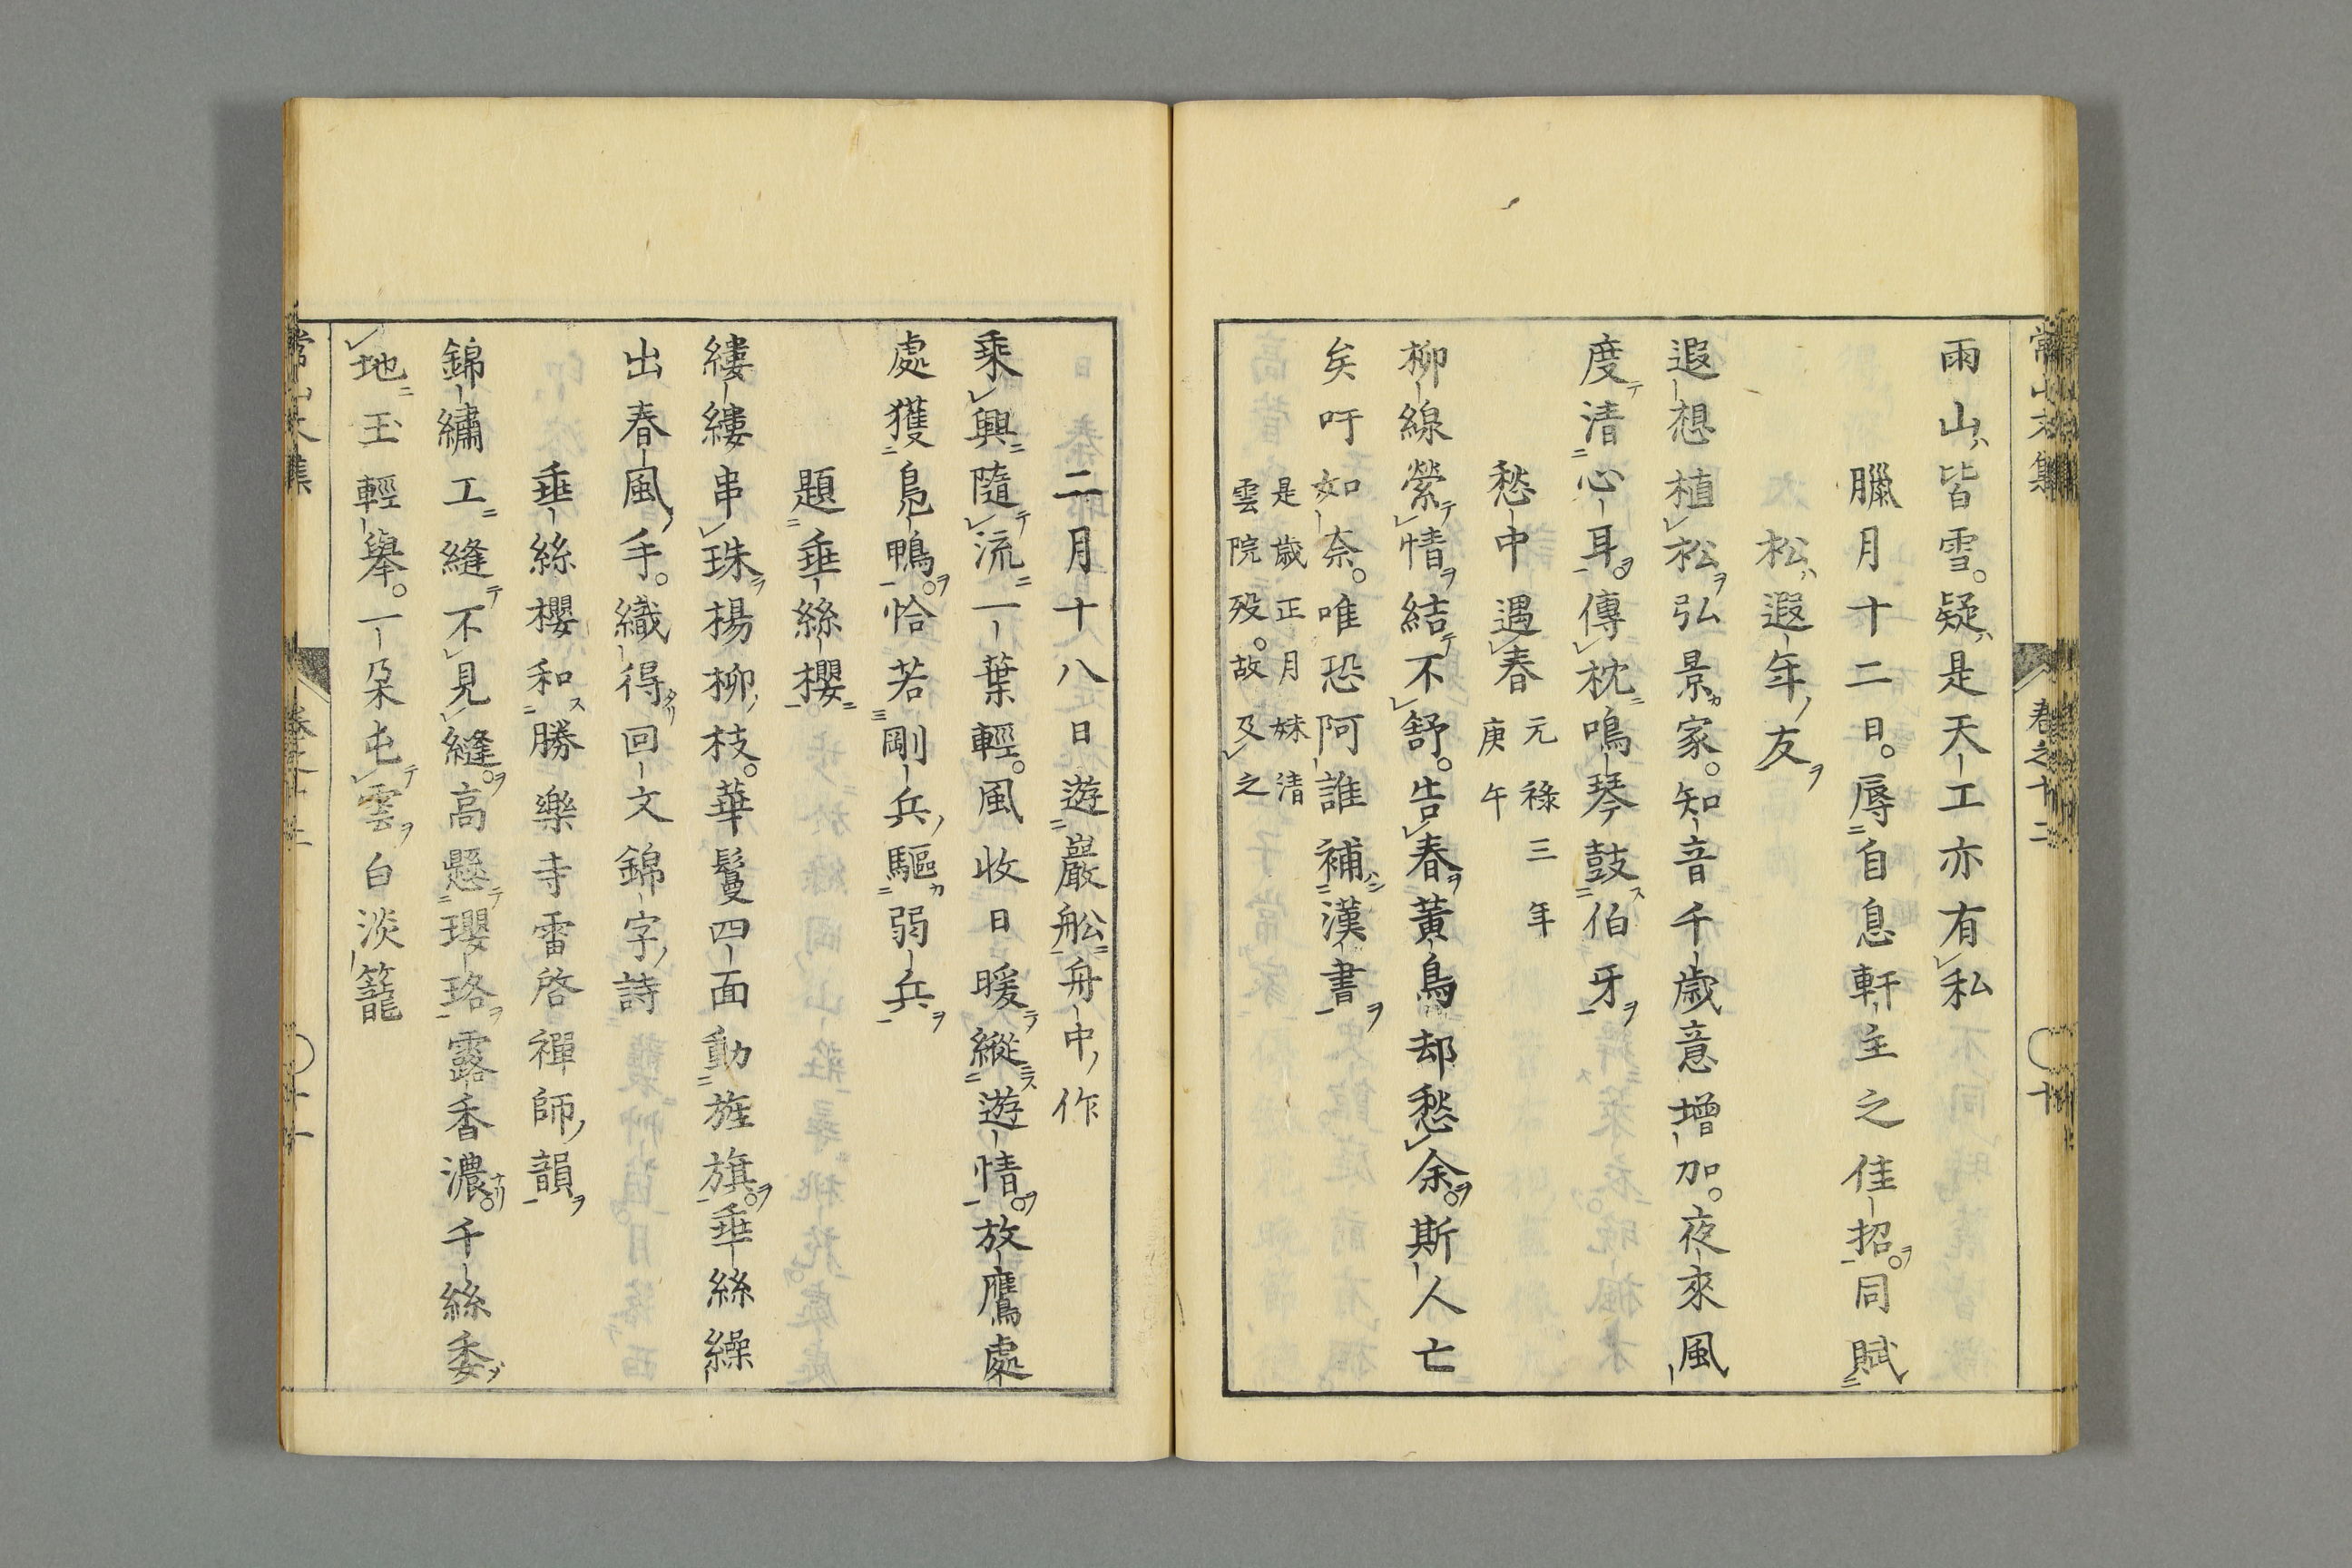 常山文集
卷之十二
十
雨山皆雪。疑是天工亦有私
臘月十二日。辱自息軒主之佳招。同賦
松遐年友
遐想植松弘景家。知音千歳意增加。夜來風
度清心耳。傳枕鳴琴鼓伯牙
愁中遇春
元祿三年
庚午
柳線縈情結不舒。告春黃鳥却愁余。斯人亡
矣吁如奈。唯恐阿誰補漢書
是歳正月妹清
雲院殁。故及之
二月十八日遊巖舩舟中作
乘興隨流一葉輕。風收日暖縱遊情。放鷹處
處獲鳧鴨。恰若剛兵驅弱兵
題垂絲櫻
縷縷串珠楊柳枝。華鬘四面動旌旗。垂絲繰
出春風手。織得回文錦字詩
垂絲櫻和勝樂寺雷啓禪師韻
錦繡工縫不見縫。高懸瓔珞露香濃。千絲委
地玉輕舉。一朶屯雲白淡籠
常山文集
卷之十二
十一